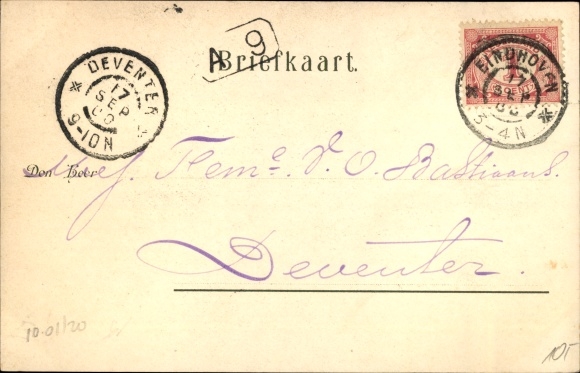 N 9
Briefkaart.
DEVENTER
17
SEP
00
9-10N
EINDHOVEN
17
SEP
00
3-4N
Den Heer
Mej. Heme. V. O. Bastiaans.
Deventer.
10-01/20
10,-